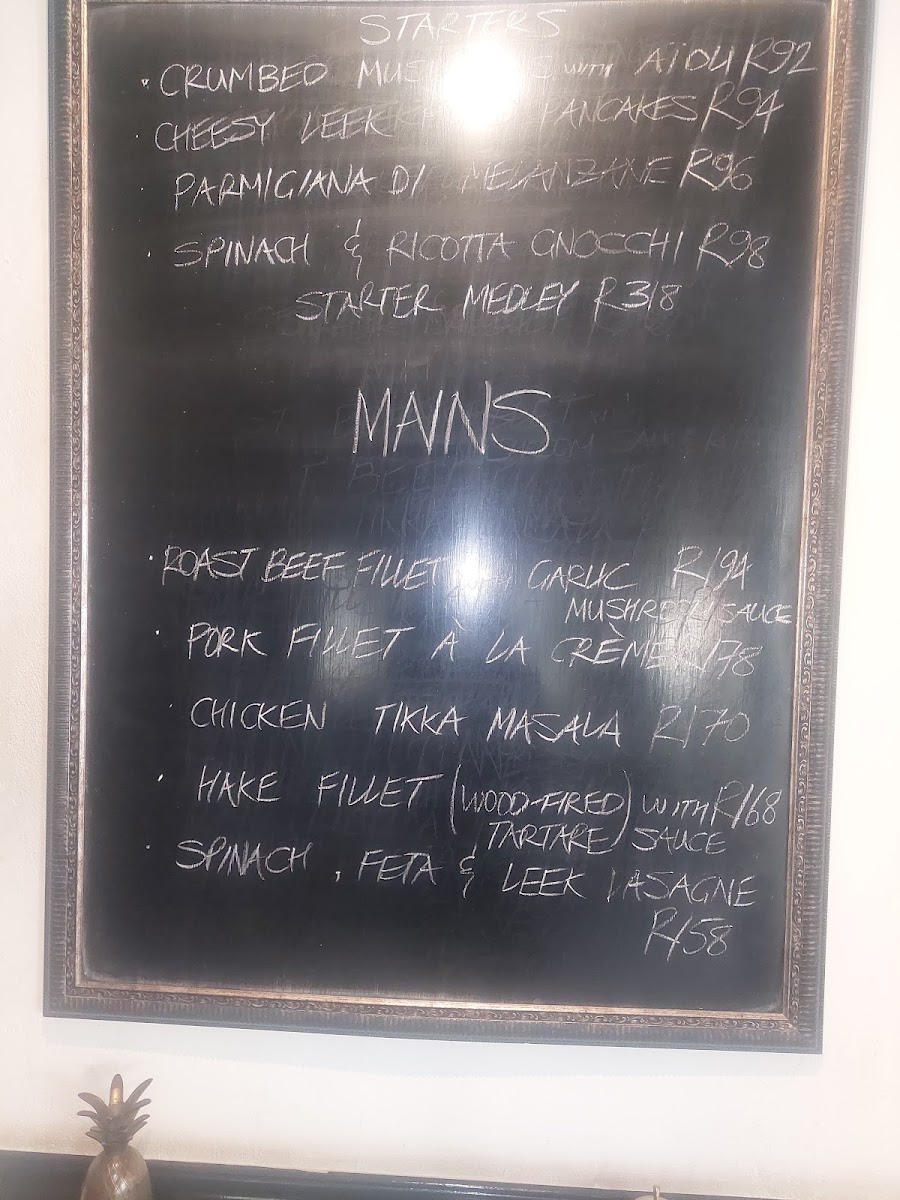 STARTERS
· CRUMBED with AIOLI R92
· CHEESY LEEK PANCAKES R94
· PARMIGIANA DI MELANZANE R96
· SPINACH & RICOTTA GNOCCHI R98
STARTER MEDLEY R318
MAINS
· ROAST BEEF FILLET with GARLIC R194
MUSHROOM SAUCE
· PORK FILLET À LA CRÈME R178
· CHICKEN TIKKA MASALA R170
· HAKE FILLET (WOOD-FIRED) with R168
TARTARE SAUCE
· SPINACH, FETA & LEEK LASAGNE
R158